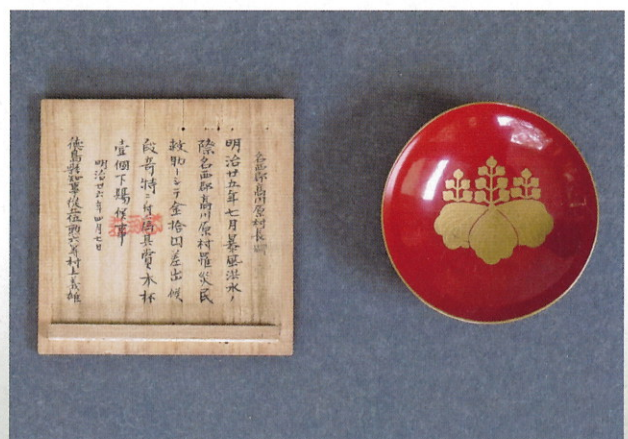 名西郡高川原村長
明治廿五年七月暴風洪水ノ
際名西郡高川原村罹災民
救助トシテ金拾円差出候
段奇特ニ付為其賞木杯
壱個下賜候事
明治廿六年四月七日
徳島県知事従五位勲六等村上義雄